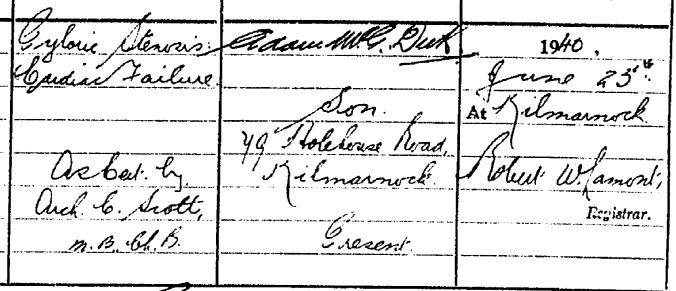 Pyloric Stenosis.
Cardiac Failure
As Cert. by
Arch. C. Scott,
M.B. Ch.B.
Adam McC. Dick
Son.
79 Holehouse Road,
Kilmarnock.
Present.
1940,
June 25th.
At Kilmarnock
Robert W. Lamont,
Registrar.